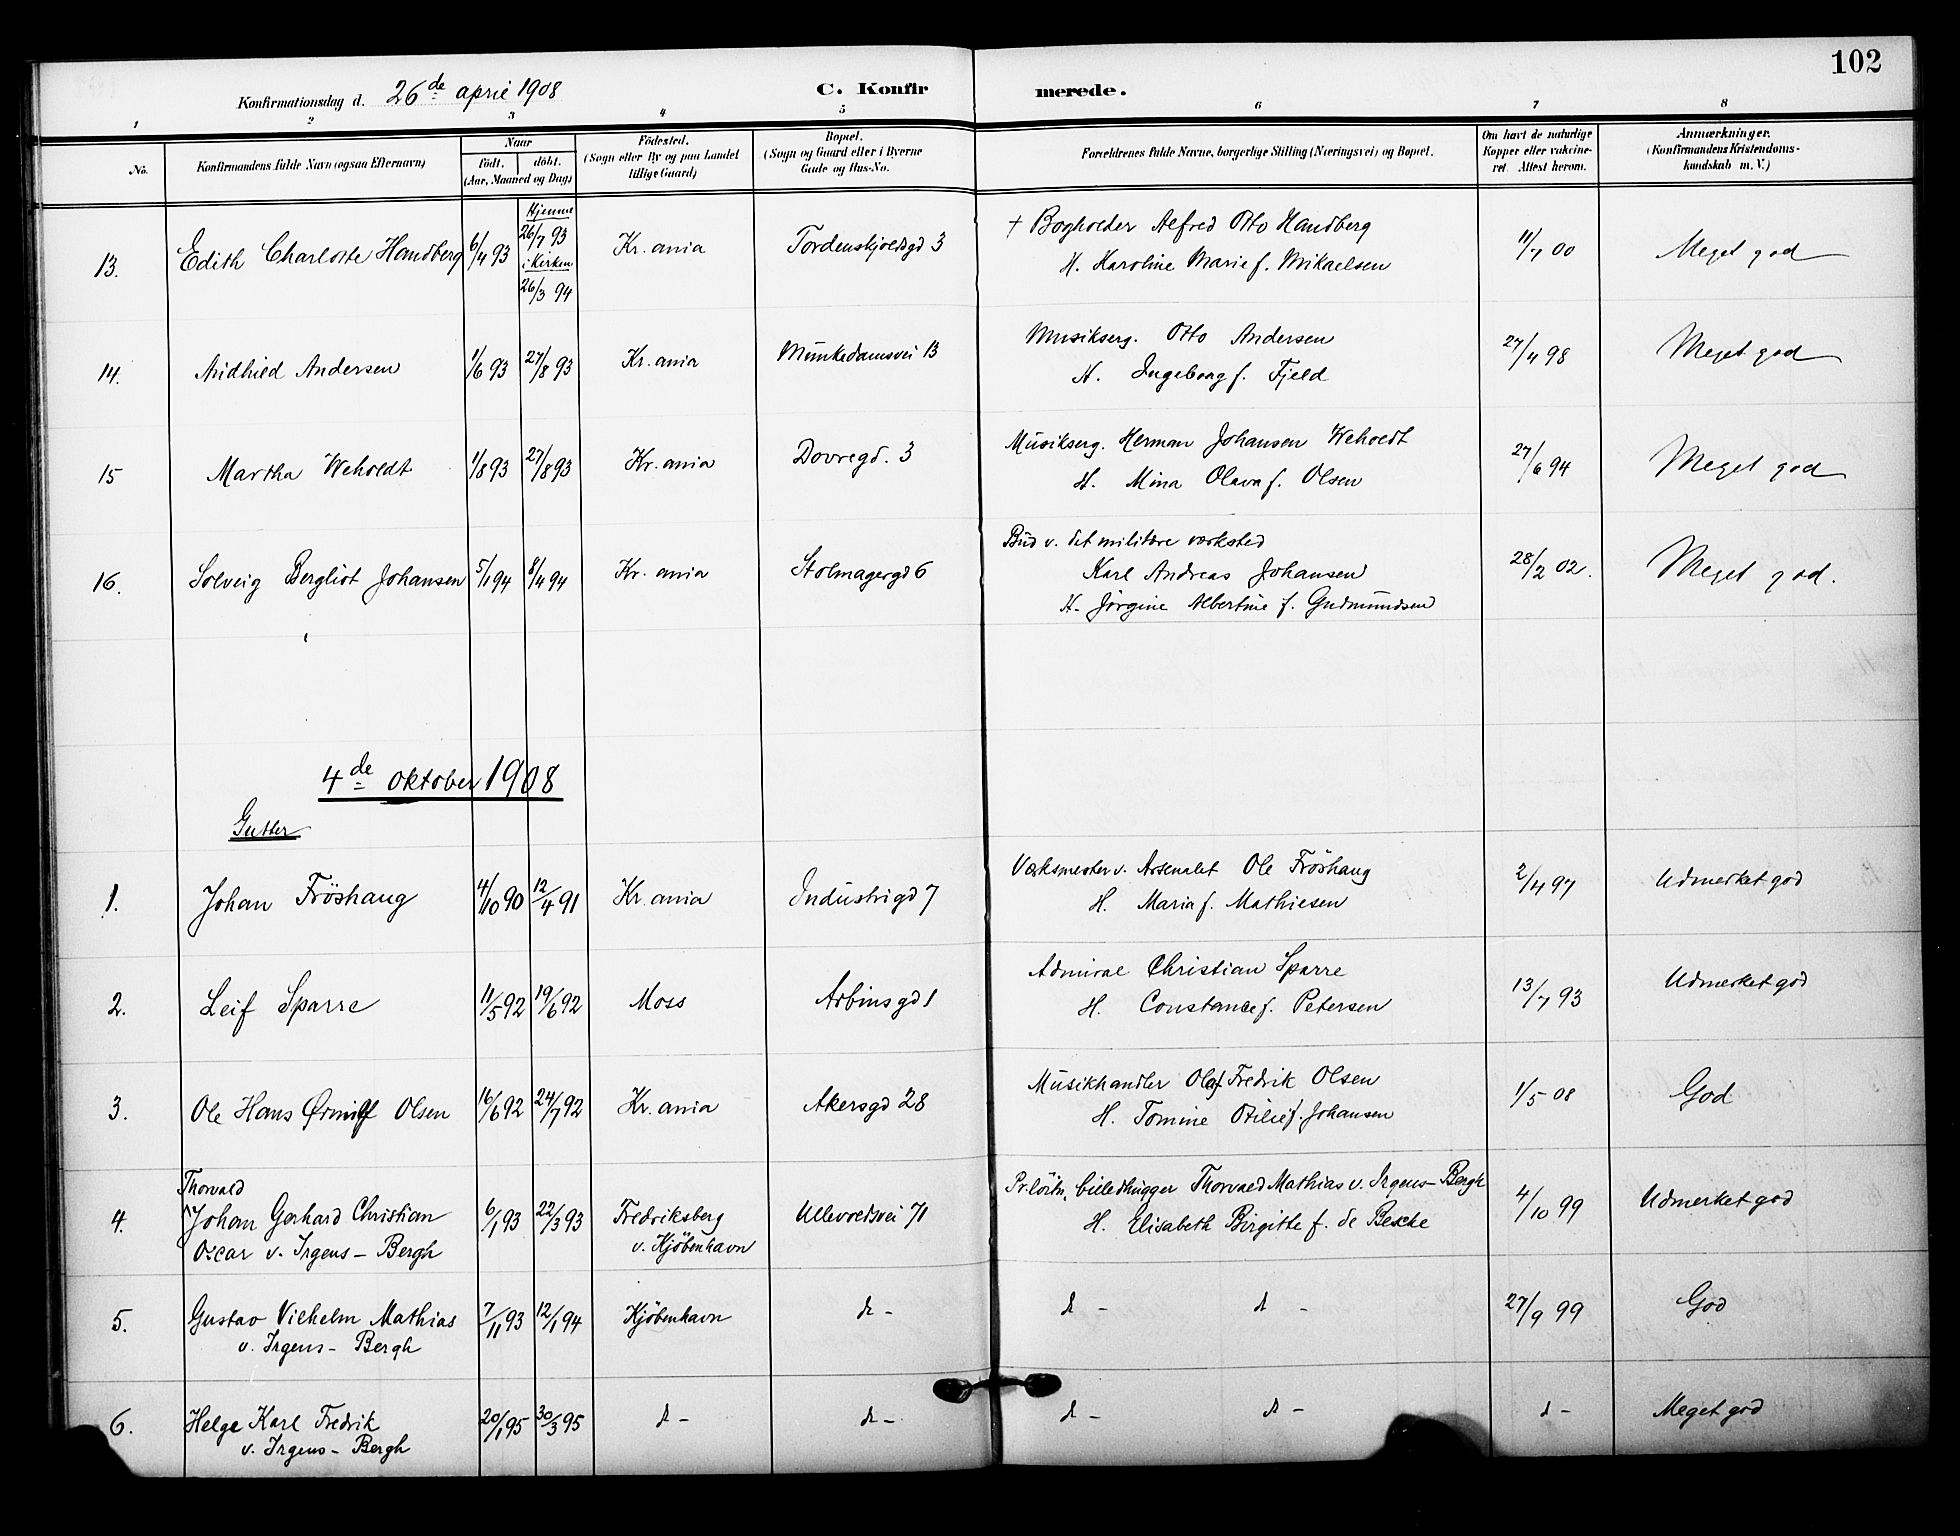 102
Konfirmationsdag d. 26de april 1908
C. Konfirmerede.
1 2 3 4 5 6 7 8
No.
Konfirmandens fulde Navn (ogsaa Efternavn)
Naar
født. døbt.
(Aar, Maaned og Dag)
Fødested.
(Sogn eller By og paa Landet
tillige Gaard)
Bopæl.
(Sogn og Gaard eller i Byerne
Gade og Hus-No.
Forældrenes fulde Navne, borgerlige Stilling (Næringsvei) og Bopæl.
Om havt de naturlige
Kopper eller vakcine-
ret. Attest herom.
Anmærkninger.
(Konfirmandens Kristendoms-
kundskab m. V.)
13. Edith Charlotte Handberg 6/4 93 Hjemme 26/7 93 i Kirken 26/3 94 Kr.ania Tordenskjoldsgd 3 † Bogholder Alfred Otto Handberg 11/7 00 Meget god
H. Karoline Marie f. Mikaelsen
14. Aidhild Andersen 1/6 93 27/8 93 Kr.ania Munkedamsvei 13 Musikserg. Otto Andersen 27/4 98 Meget god
H. Ingeborg f. Fjeld
15 Martha Weholdt 1/8 93 27/8 93 Kr.ania Dovregd. 3 Musikserg. Herman Johansen Weholdt 27/6 94 Meget god
H. Mina Olava f. Olsen
16. Solveig Bergliot Johansen 5/1 94 8/4 94 Kr.ania Stolmagergd 6 Bud v. det militære værksted 28/2 02. Meget god.
Karl Andreas Johansen
H. Jörgine Albertine f. Gudmundsen
4de oktober 1908
Gutter
1. Johan Fröshaug 4/10 90 12/4 91 Kr.ania Industrigd 7 Værksmester v. Arsenalet Ole Fröshaug 2/4 97 Udmerket god
H. Maria f. Mathiesen
2. Leif Sparre 11/5 92 19/6 92 Moss Arbinsgd 1 Admiral Christian Sparre 13/7 93 Udmerket god
H. Constance f. Petersen
3. Ole Hans Ørnulf Olsen 16/6 92 24/7 92 Kr.ania Akersgd 28 Musikhandler Olaf Fredrik Olsen 1/5 08 God
H. Tomine Otilie f. Johansen
Thorvald
4. Johan Gerhard Christian 6/1 93 22/3 93 Fredriksberg Ullevoldsvei 71 Pr.löitn. billedhugger Thorvald Mathias v. Irgens-Bergh 4/10 99 Udmerket god
Oscar v. Irgens-Bergh v. Kjöbenhavn H. Elisabeth Birgitte f. de Besche
5. Gustav Vilhelm Mathias 7/11 93 12/1 94 Kjöbenhavn d- d- d- 27/9 99 God
v. Irgens-Bergh
6. Helge Karl Fredrik 20/1 95 30/3 95 d- d- d- d- d- Meget god
v. Irgens-Bergh